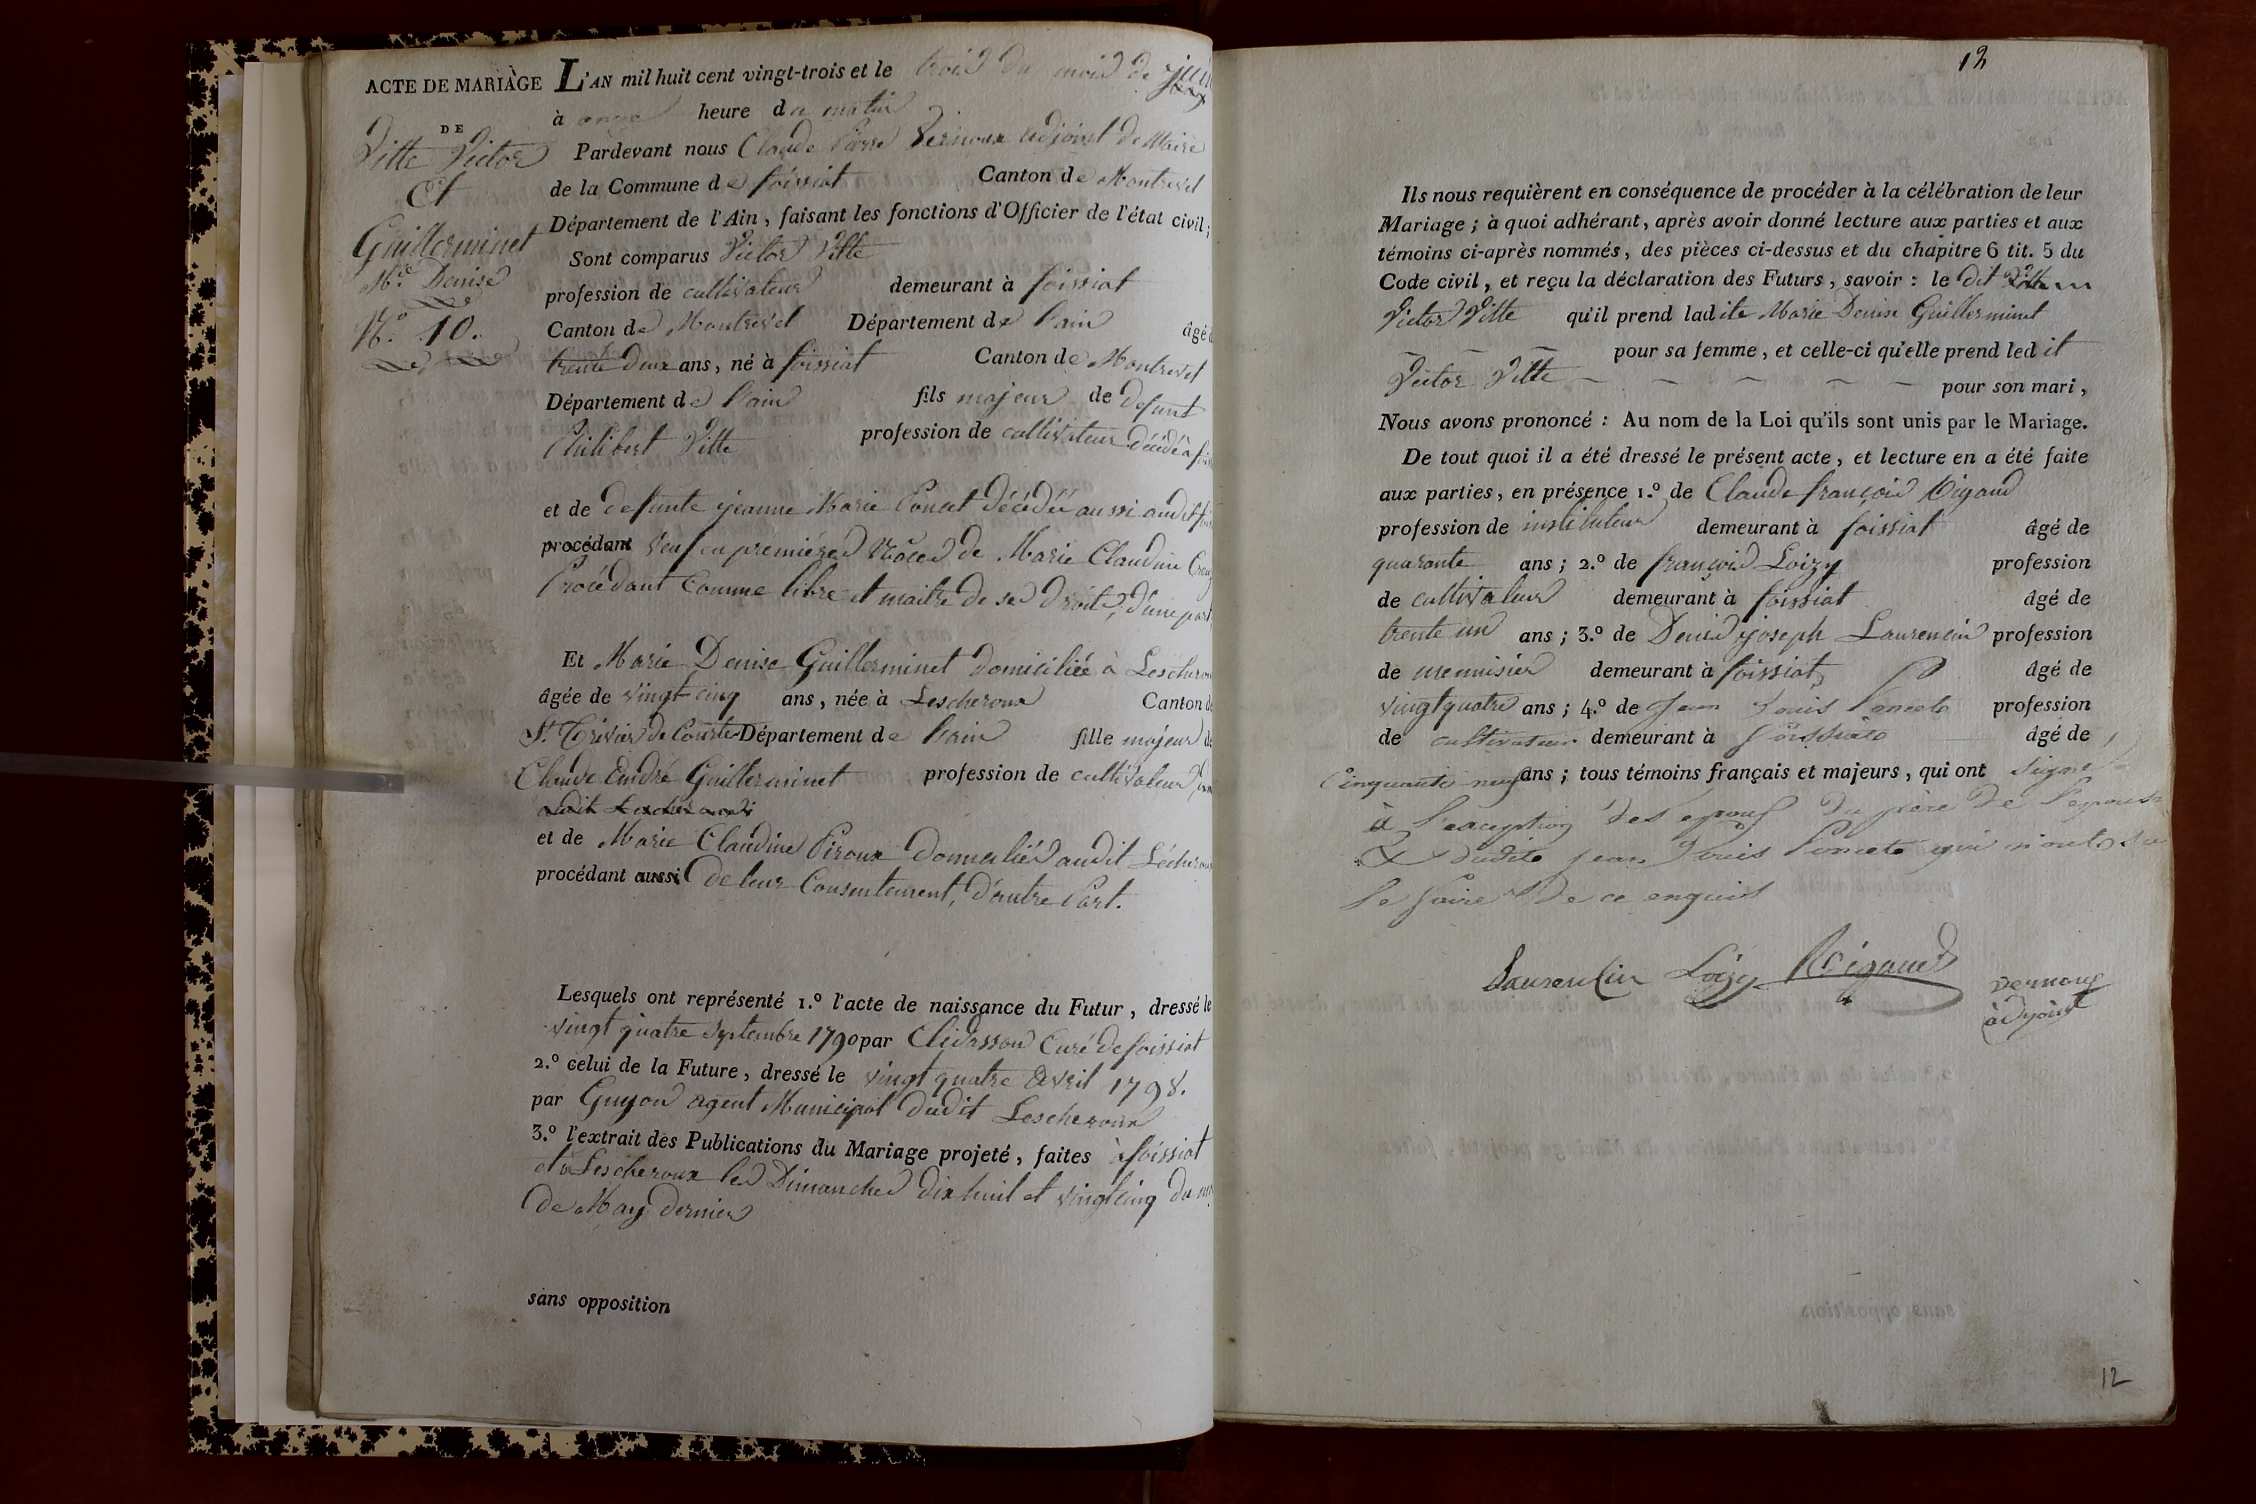 ACTE DE MARIAGE
DE
Vitte Victor
Et
Guillerminet
Mie Denise
N.º 10.
L'AN mil huit cent vingt-trois et le trois du mois de juin
à onze heure du matin
Pardevant nous Claude Pierre Vernoux adjoint de Maire
de la Commune de foissiat Canton de Montrevel
Département de l'Ain, faisant les fonctions d'Officier de l'état civil;
Sont comparus Victor Vitte
profession de cultivateur demeurant à foissiat
Canton de Montrevel Département de l'ain âgé d
trente deux ans, né à foissiat Canton de Montrevel
Département de l'ain fils majeur de defunt
Philibert Vitte profession de cultivateur décédé à
et de defunte jeanne Marie Poncet décédée aussi audit
procédant veuf en premières Nôces de Marie Claudine
Procédant Comme libre et maitre de ses droits, d'une part.
Et Marie Denise Guillerminet domiciliée à Lescheroux
âgée de vingt cinq ans, née à Lescheroux Canton de
St. Trivier de Courtes Département de l'ain fille majeur de
Claude André Guillerminet profession de cultivateur
et de Marie Claudine Piroux domiciliés audit Lécheroux
procédant aussi de leur Consentement, d'autre Part.
Lesquels ont représenté 1.º l'acte de naissance du Futur, dressé le
vingt quatre Septembre 1790 par Curé de foissiat
2.º celui de la Future, dressé le vingt quatre avril 1798.
par Guyon agent Municipal dudit Lescheroux
3.º l'extrait des Publications du Mariage projeté, faites à foissiat
et à Lescheroux les Dimanches dix huit et vingt cinq du
de May dernier
sans opposition
12
Ils nous requièrent en conséquence de procéder à la célébration de leur
Mariage; à quoi adhérant, après avoir donné lecture aux parties et aux
témoins ci-après nommés, des pièces ci-dessus et du chapitre 6 tit. 5 du
Code civil, et reçu la déclaration des Futurs, savoir: le dit
Victor Vitte qu'il prend ladite Marie Denise Guillerminet
pour sa femme, et celle-ci qu'elle prend ledit
Victor Vitte pour son mari,
Nous avons prononcé: Au nom de la Loi qu'ils sont unis par le Mariage.
De tout quoi il a été dressé le présent acte, et lecture en a été faite
aux parties, en présence 1.º de Claude françois Rigaud
profession de instituteur demeurant à foissiat âgé de
quarante ans; 2.º de françois Loizy profession
de cultivateur demeurant à foissiat âgé de
trente un ans; 3.º de Denis joseph Laurencin profession
de menuisier demeurant à foissiat âgé de
vingt quatre ans; 4.º de Jean Louis Poncet profession
de cultivateur demeurant à foissiat âgé de
Cinquante neuf ans; tous témoins français et majeurs, qui ont signé
à l'exception des epoux du père de l'epouse
& dudit jean Louis Poncet qui n'ont su
le faire de ce enquis
Laurencin Loizy Rigaud vernoux
adjoint
12